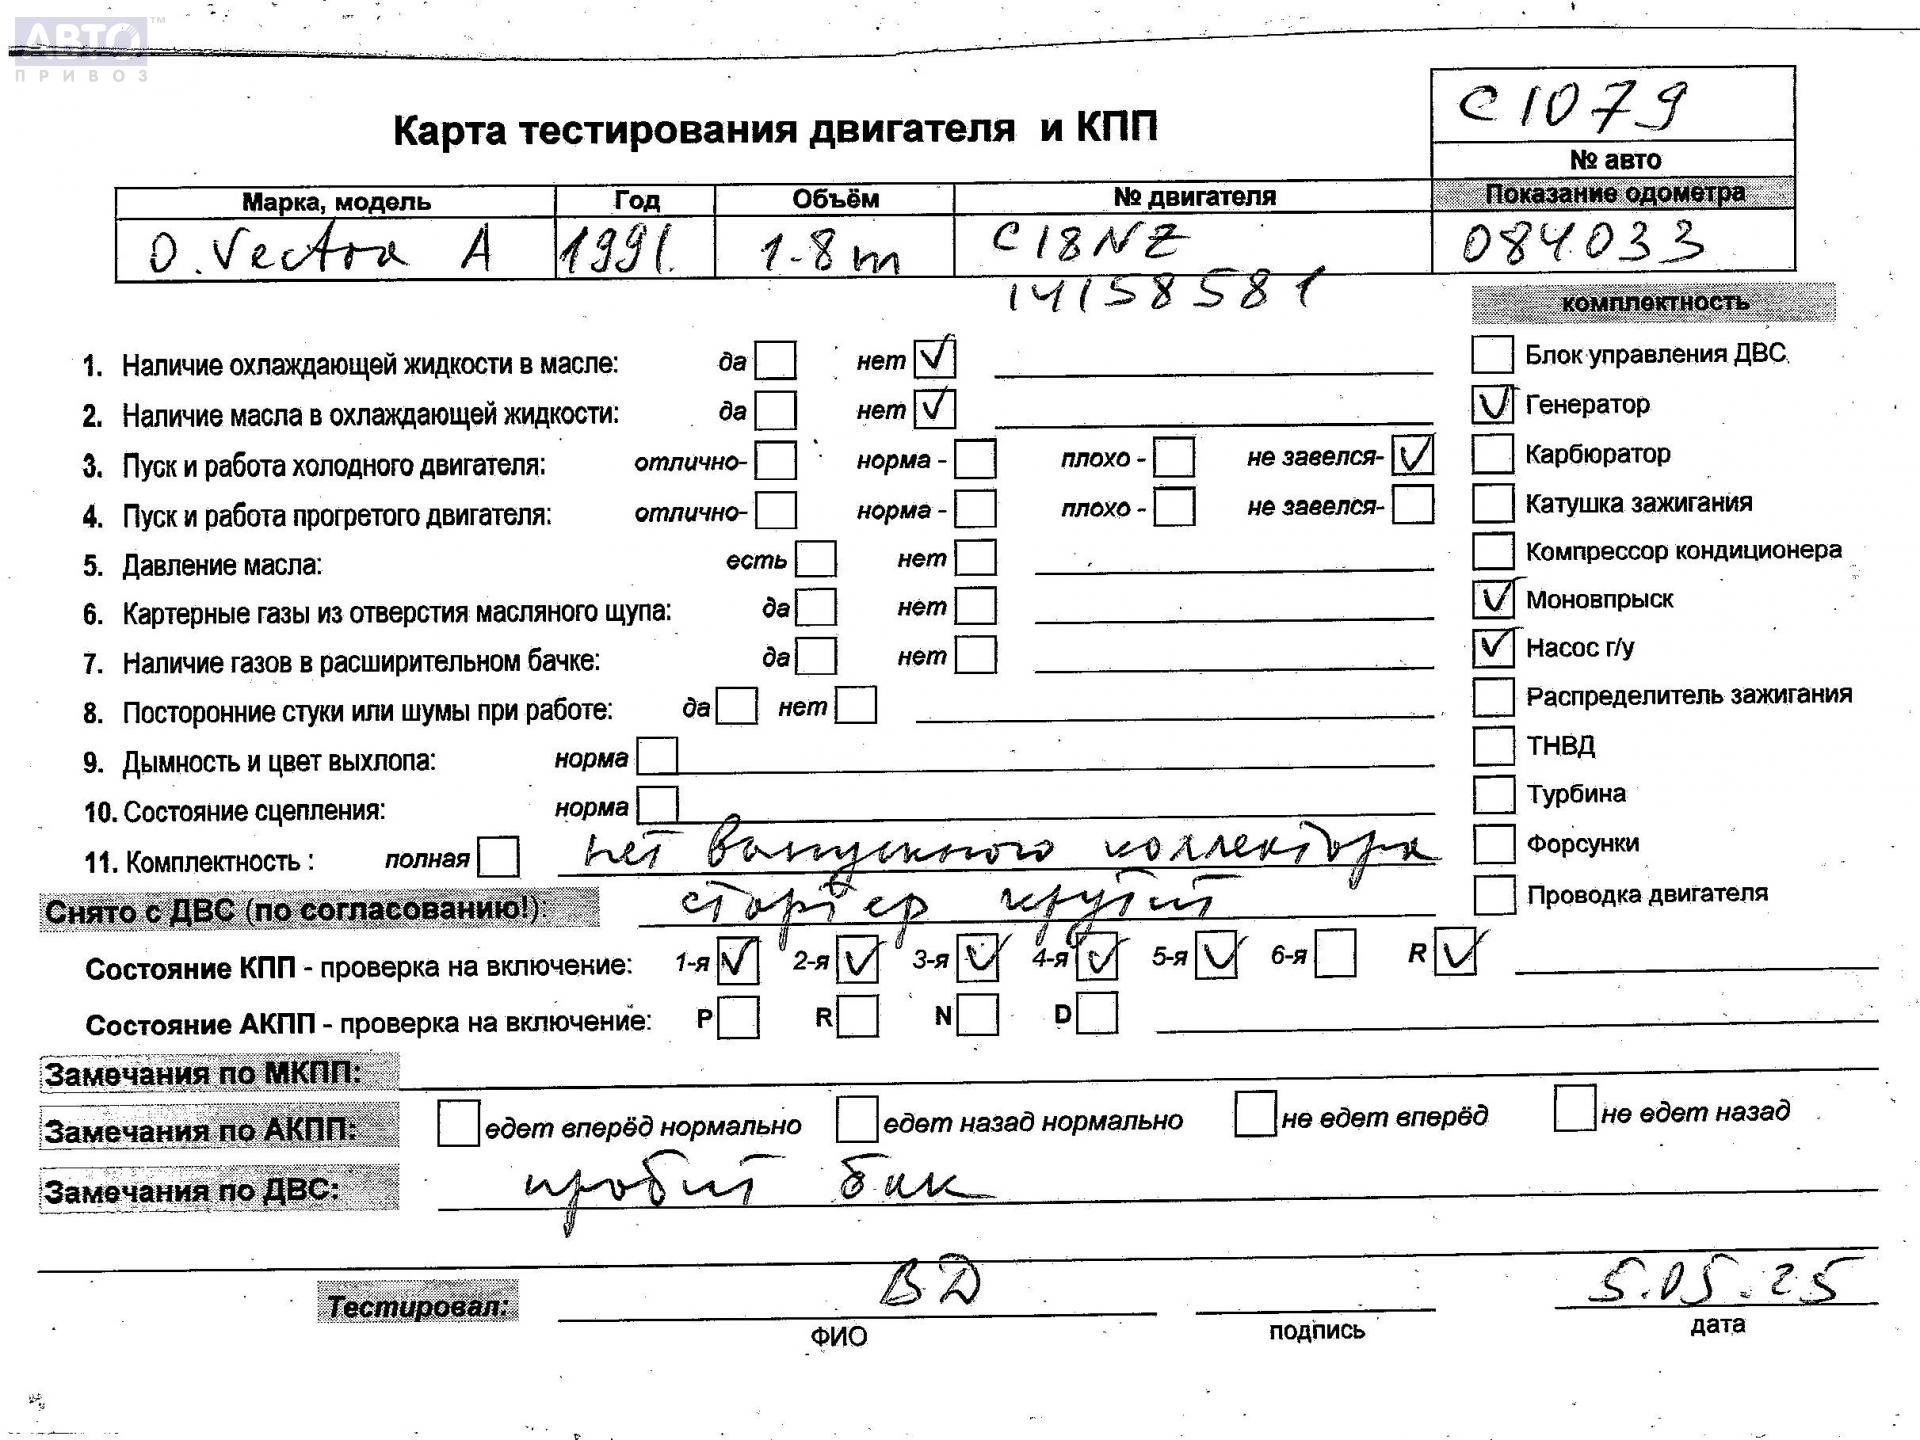 АВТО™
ПРИВОЗ
С1079
Карта тестирования двигателя и КПП
№ авто
Марка, модель Год Объём № двигателя Показание одометра
O. Vectra A 1991. 1.8 m C18NZ 084033
14158581
комплектность
1. Наличие охлаждающей жидкости в масле: да нет ✓
Блок управления ДВС.
2. Наличие масла в охлаждающей жидкости: да нет ✓
✓ Генератор
3. Пуск и работа холодного двигателя: отлично- норма - плохо - не завелся- ✓
Карбюратор
4. Пуск и работа прогретого двигателя: отлично- норма - плохо - не завелся-
Катушка зажигания
5. Давление масла: есть нет
Компрессор кондиционера
6. Картерные газы из отверстия масляного щупа: да нет
✓ Моновпрыск
7. Наличие газов в расширительном бачке: да нет
✓ Насос г/у
8. Посторонние стуки или шумы при работе: да нет
Распределитель зажигания
9. Дымность и цвет выхлопа: норма
ТНВД
10. Состояние сцепления: норма
Турбина
11. Комплектность : полная нет выпускного коллектора
Форсунки
Снято с ДВС (по согласованию!): стартер крутит
Проводка двигателя
Состояние КПП - проверка на включение: 1-я ✓ 2-я ✓ 3-я ✓ 4-я ✓ 5-я ✓ 6-я R ✓
Состояние АКПП - проверка на включение: P R N D
Замечания по МКПП:
Замечания по АКПП: едет вперёд нормально едет назад нормально не едет вперёд не едет назад
Замечания по ДВС: пробит бак
Тестировал: ВД 5.05.25
ФИО подпись дата